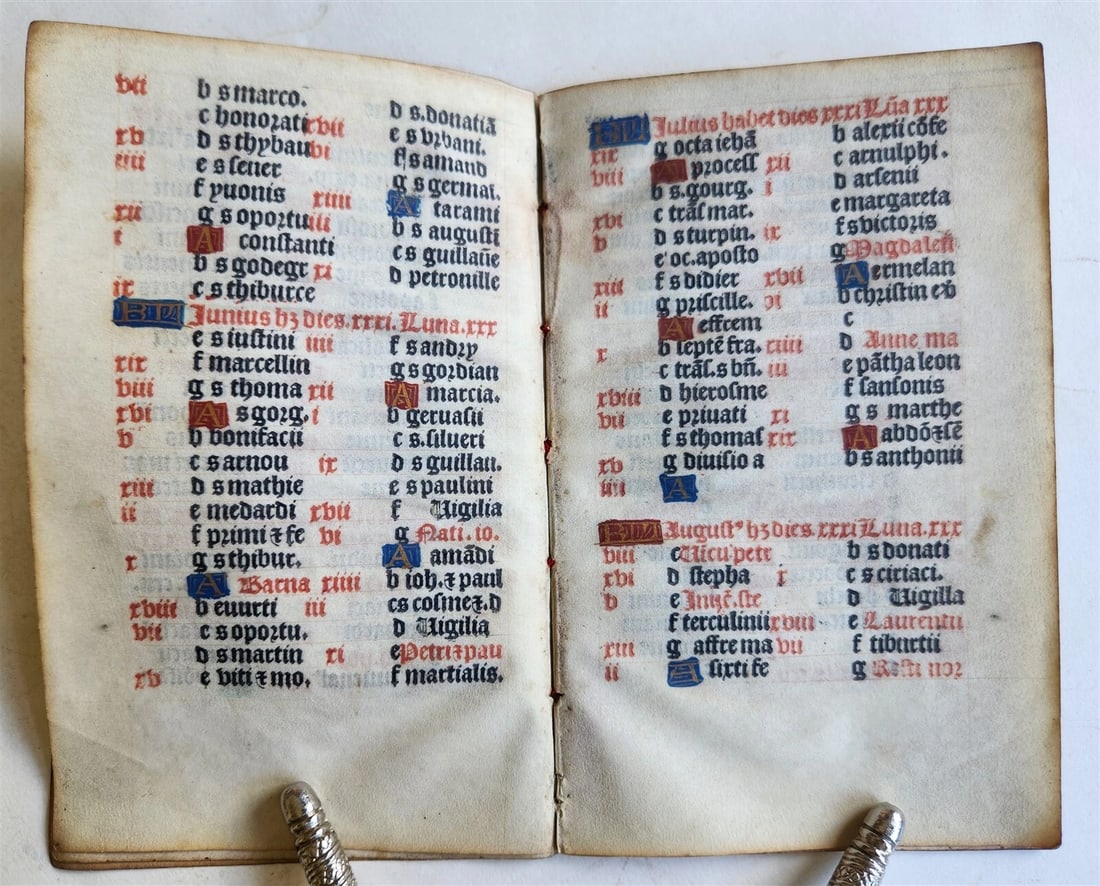 vii b s marco.
c honorati
xv d s thybau
iiii e s sener
f yuonis
xii g s oportu
i A constanti
b s godegr
ix c s thiburce
xvii d s. donatiā
vi e s vrbani.
f s amand
g s germa.
xiiii A tarami
iii b s augusti
c s guillaūe
xi d petronille
KL Junius hȝ dies. xxxi. Luna. xxx
e s iustini
xix f marcellin
viii g s thoma
xvi A s gorg.
v b bonifacii
c s arnou
xiii d s mathie
ii e medardi
f primi ⁊ fe
x g s thibur.
A Barna
xviii b euurti
vii c s oportu.
d s martin
xv e viti ⁊ mo.
iiii f s andry
g s gordian
xii A marcia.
i b geruasii
c s. silueri
ix d s guillau.
e s paulini
xvii f Uigilia
vi g Nati. io.
A amādi
xiiii b ioh. ⁊ paul
iii c s cosme ⁊. d
d Uigilia
xi e Petri ⁊ pau
f martialis.
KL Julius habet dies xxxi Lūa xxx
xix g octa iehā
viii A process
b s. gourg.
xvi c trās mar.
v d s turpin.
e oc. aposto
xiii f s didier
ii g priscille.
A effrem
x b leptē fra.
c trās. s bñ.
xviii d hierosme
vii e priuati
f s thomas
xv g diuisio a
iiii A
b alexii cōfe
xii c arnulphi.
i d arsenii
e margareta
ix f s victoris
g Magdalen
xvii A ermelan
vi b christin e v
c
xiiii d Anne ma
iii e pātha leon
f sansonis
xi g s marthe
xix A abdō ⁊ sē
b s anthonii
KL August⁹ hȝ dies. xxxi Luna. xxx
viii c Uicu petr
xvi d stepha
v e Inuē. ste
f terculinii
xiii g affre ma
ii A sixti fe
b s donati
x c s ciriaci.
d Uigilla
xviii e Laurentii
vii f tiburtii
g